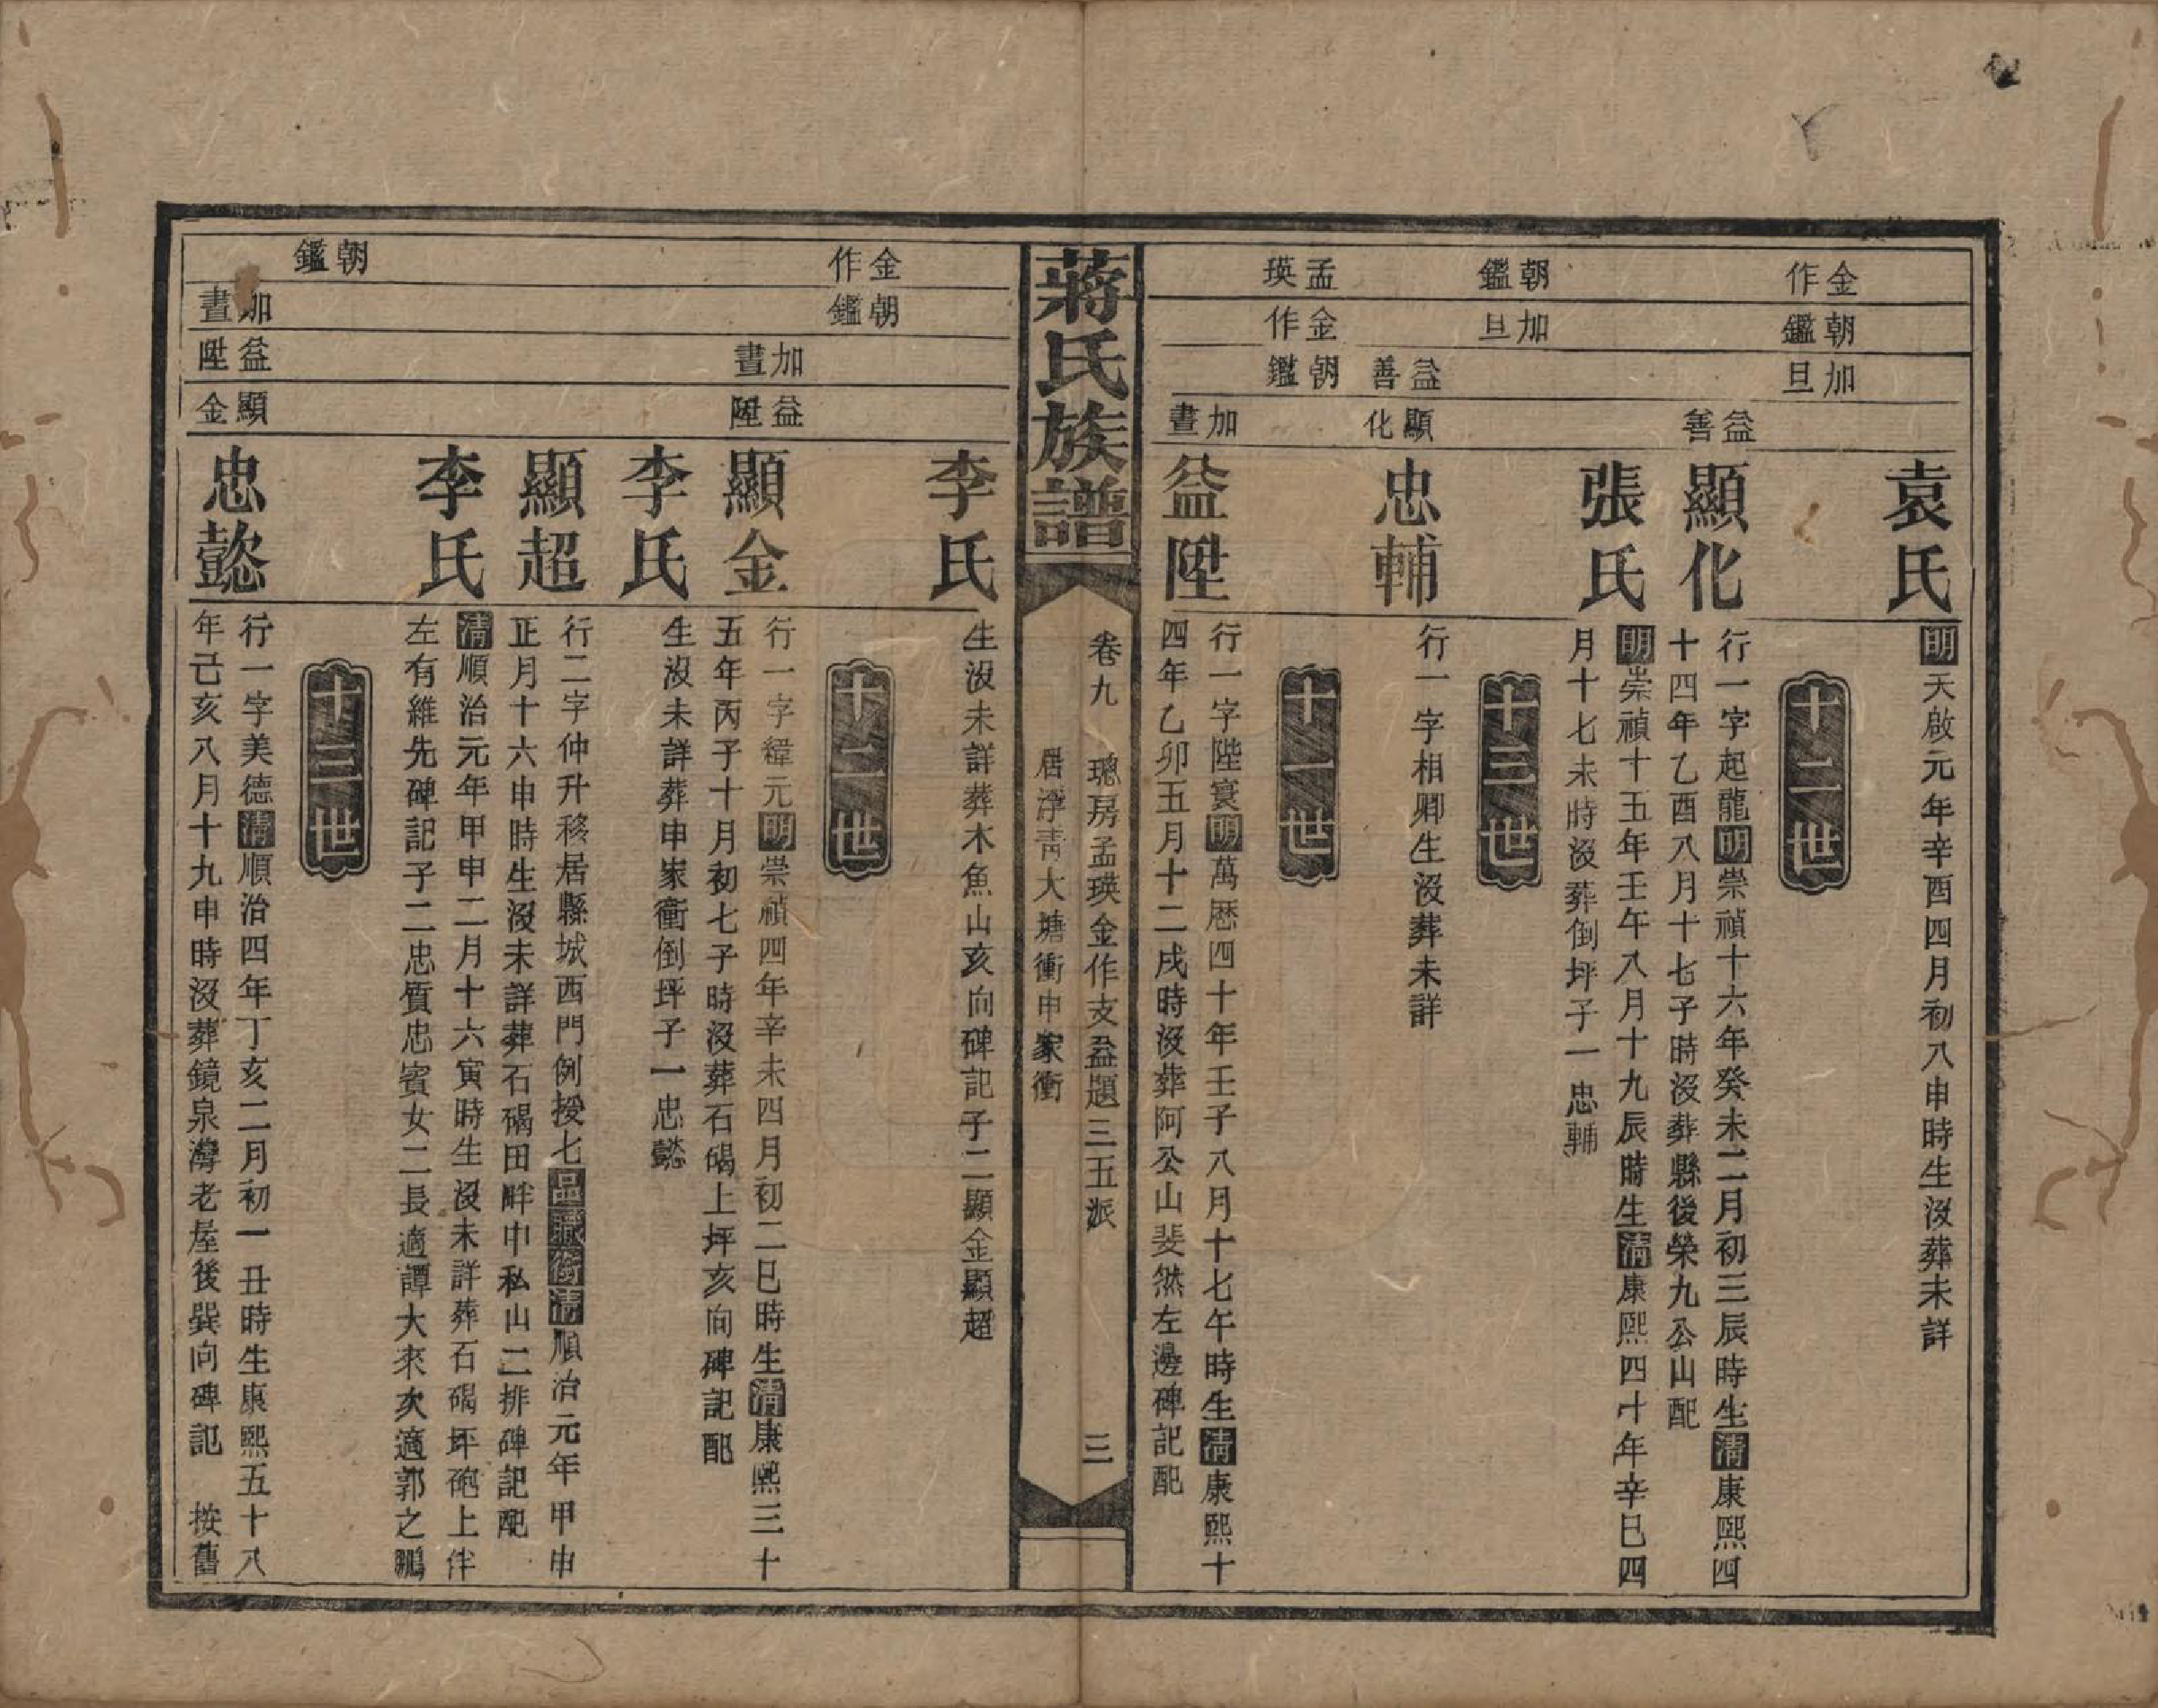 金作
朝鑑
加旦
袁氏
明天啟元年辛酉四月初八申時生沒葬未詳
十二世
益善
顯化
行一字起龍明崇禎十六年癸未二月初三辰時生清康熙四
十四年乙酉八月十七子時沒葬縣後榮九公山配
張氏
明崇禎十五年壬午八月十九辰時生清康熙四十年辛巳四
月十七未時沒葬倒坪子一忠輔
朝鑑
加旦
十三世
益善
顯化
忠輔
行一字相卿生沒葬未詳
孟瑛
金作
朝鑑
十一世
加晝
益陞
行一字陛寰明萬曆四十年壬子八月十七午時生清康熙十
四年乙卯五月十二戌時沒葬阿公山斐然左邊碑記配
蔣氏族譜
卷九 璁房孟瑛金作支益題三五派
居浮青大塘衝申家衝
三
李氏
生沒未詳葬木魚山亥向碑記子二顯金顯超
金作
朝鑑
十二世
加晝
益陞
顯金
行一字緯元明崇禎四年辛未四月初二巳時生清康熙三十
五年丙子十月初七子時沒葬石碣上坪亥向碑記配
李氏
生沒未詳葬申家衝倒坪子一忠懿
顯超
行二字仲升移居縣城西門例授七品職銜清順治元年甲申
正月十六申時生沒未詳葬石碣田畔中私山二排碑記配
李氏
清順治元年甲申二月十六寅時生沒未詳葬石碣坪砲上伴
左有維先碑記子二忠質忠賓女二長適譚大來次適郭之鵬
朝鑑
十三世
加晝
益陞
顯金
忠懿
行一字美德清順治四年丁亥二月初一丑時生康熙五十八
年己亥八月十九申時沒葬鏡泉灣老屋後巽向碑記 按舊